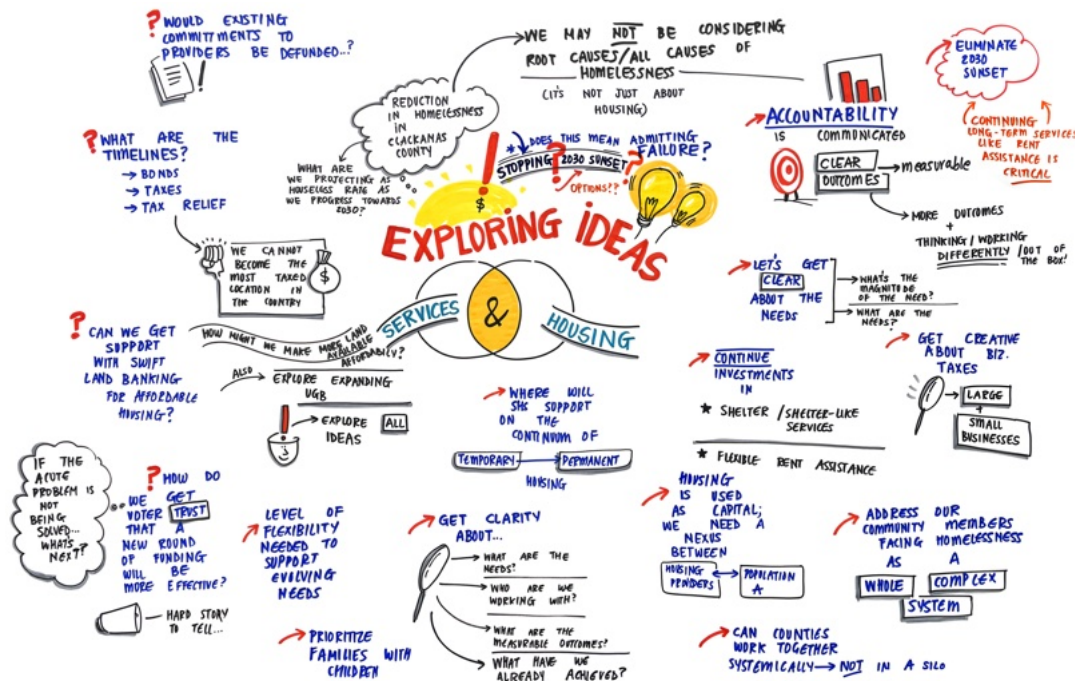 ? WOULD EXISTING
COMMITMENTS TO
PROVIDERS BE DEFUNDED...?
!
? WHAT ARE THE
TIMELINES?
→ BONDS
→ TAXES
→ TAX RELIEF
WE CANNOT
BECOME THE
MOST TAXED
LOCATION IN
THE COUNTRY
$
? CAN WE GET
SUPPORT
WITH SWIFT
LAND BANKING
FOR AFFORDABLE
HOUSING?
HOW MIGHT WE MAKE MORE LAND
AVAILABLE
AFFORDABLY?
ALSO
EXPLORE EXPANDING
UGB
EXPLORE ALL
IDEAS
IF THE
ACUTE
PROBLEM IS
NOT
BEING
SOLVED...
WHATS
NEXT?
? HOW DO
WE GET
VOTER TRUST
THAT A
NEW ROUND
OF FUNDING
WILL BE
MORE EFFECTIVE?
HARD STORY
TO TELL...
REDUCTION
IN HOMELESSNESS
IN
CLACKAMAS
COUNTY
WHAT ARE
WE PROJECTING AS
HOUSELESS RATE AS
WE PROGRESS TOWARDS
2030?
WE MAY NOT BE CONSIDERING
ROOT CAUSES/ALL CAUSES OF
HOMELESSNESS
(IT'S NOT JUST ABOUT
HOUSING)
* DOES THIS MEAN ADMITTING
FAILURE?
STOPPING 2030 SUNSET
? ?
OPTIONS??
!
$
$
EXPLORING IDEAS
SERVICES
&
HOUSING
WHERE WILL
SHS SUPPORT
ON THE
CONTINUUM OF
TEMPORARY → PERMANENT
HOUSING
LEVEL OF
FLEXIBILITY
NEEDED TO
SUPPORT
EVOLVING
NEEDS
PRIORITIZE
FAMILIES WITH
CHILDREN
GET CLARITY
ABOUT...
WHAT ARE THE
NEEDS?
WHO ARE WE
WORKING WITH?
WHAT ARE THE
MEASURABLE OUTCOMES?
WHAT HAVE WE
ALREADY ACHIEVED?
ACCOUNTABILITY
IS COMMUNICATED
CLEAR
OUTCOMES
→ measurable
MORE OUTCOMES
+
THINKING / WORKING
DIFFERENTLY / OUT OF
THE BOX!
ELIMINATE
2030
SUNSET
CONTINUING
LONG-TERM SERVICES
LIKE RENT
ASSISTANCE IS
CRITICAL
LET'S GET
CLEAR
ABOUT THE
NEEDS
WHAT'S THE
MAGNITUDE
OF THE NEED?
WHAT ARE THE
NEEDS?
CONTINUE
INVESTMENTS
IN
★ SHELTER / SHELTER-LIKE
SERVICES
★ FLEXIBLE RENT ASSISTANCE
GET CREATIVE
ABOUT BIZ.
TAXES
LARGE
+
SMALL
BUSINESSES
HOUSING
IS USED
AS CAPITAL;
WE NEED A
NEXUS
BETWEEN
HOUSING
PROVIDERS ↔ POPULATION
A
ADDRESS OUR
COMMUNITY MEMBERS
FACING HOMELESSNESS
AS A
WHOLE COMPLEX
SYSTEM
CAN COUNTIES
WORK TOGETHER
SYSTEMICALLY → NOT IN A SILO